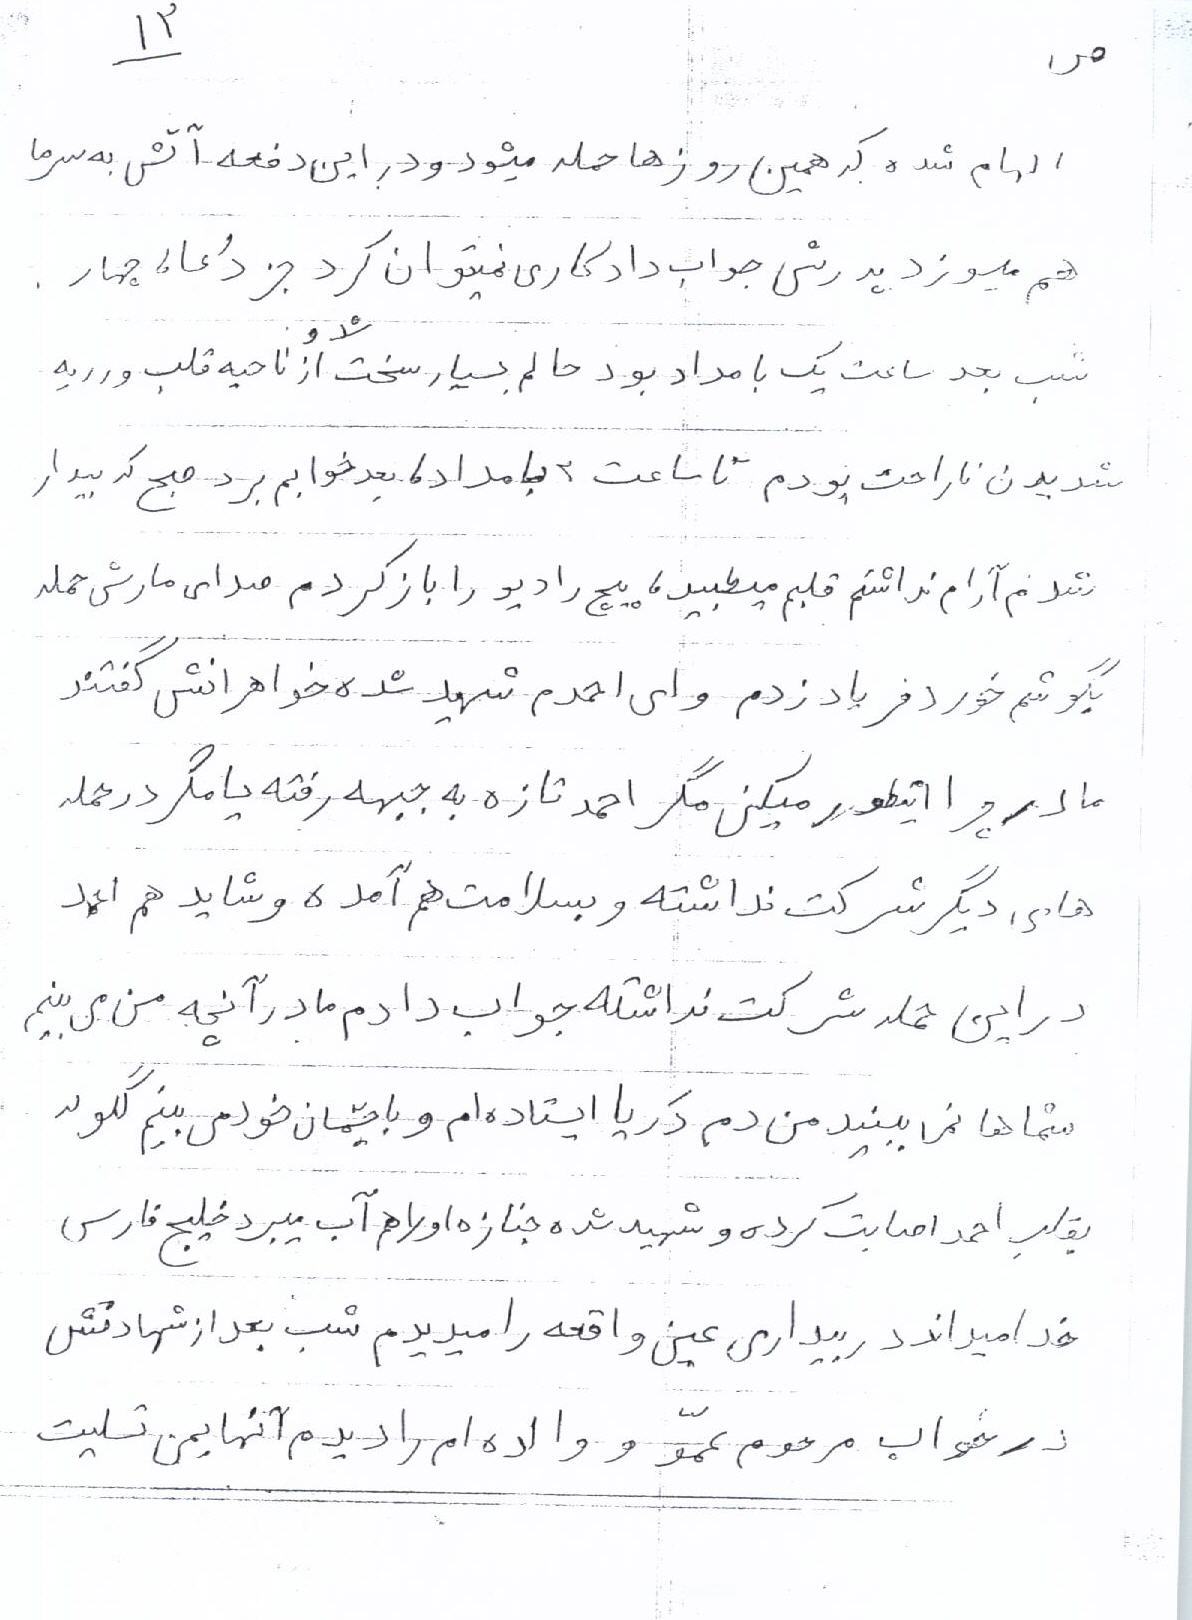 ۱۲
ص
الهام شده که همین روزها حمله میشود و در این دفعه آتش به سر ما
هم میوزد پدرش جواب داد کاری نمیتوان کرد جز دُعا، چهار
شد و
شب بعد ساعت یک بامداد بود حالم بسیار سخت از ناحیه قلب و ریه
شدیدن ناراحت بودم تا ساعت ۲ بامداد، بعد خوابم برد صبح که بیدار
شدم آرام نداشتم قلبم میطپید، پیچ رادیو را باز کردم صدای مارش حمله
بگوشم خورد فریاد زدم وای احمدم شهید شده خواهرانش گفتند
مادر چرا اینطور میکنی مگر احمد تازه به جبهه رفته یا مگر در حمله
های دیگر شرکت نداشته و بسلامت هم آمده و شاید هم احمد
در این حمله شرکت نداشته جواب دادم مادر آنچه من می بینم
شماها نمی بینید من دم دریا ایستاده ام و با چشمان خود می بینم گلوله
بقلب احمد اصابت کرده و شهید شده جنازه او را هم آب میبرد خلیج فارس
خدا میداند در بیداری عین واقعه را میدیدم شب بعد از شهادتش
در خواب مرحوم عمّو و والده ام را دیدم آنها بمن تسلیت